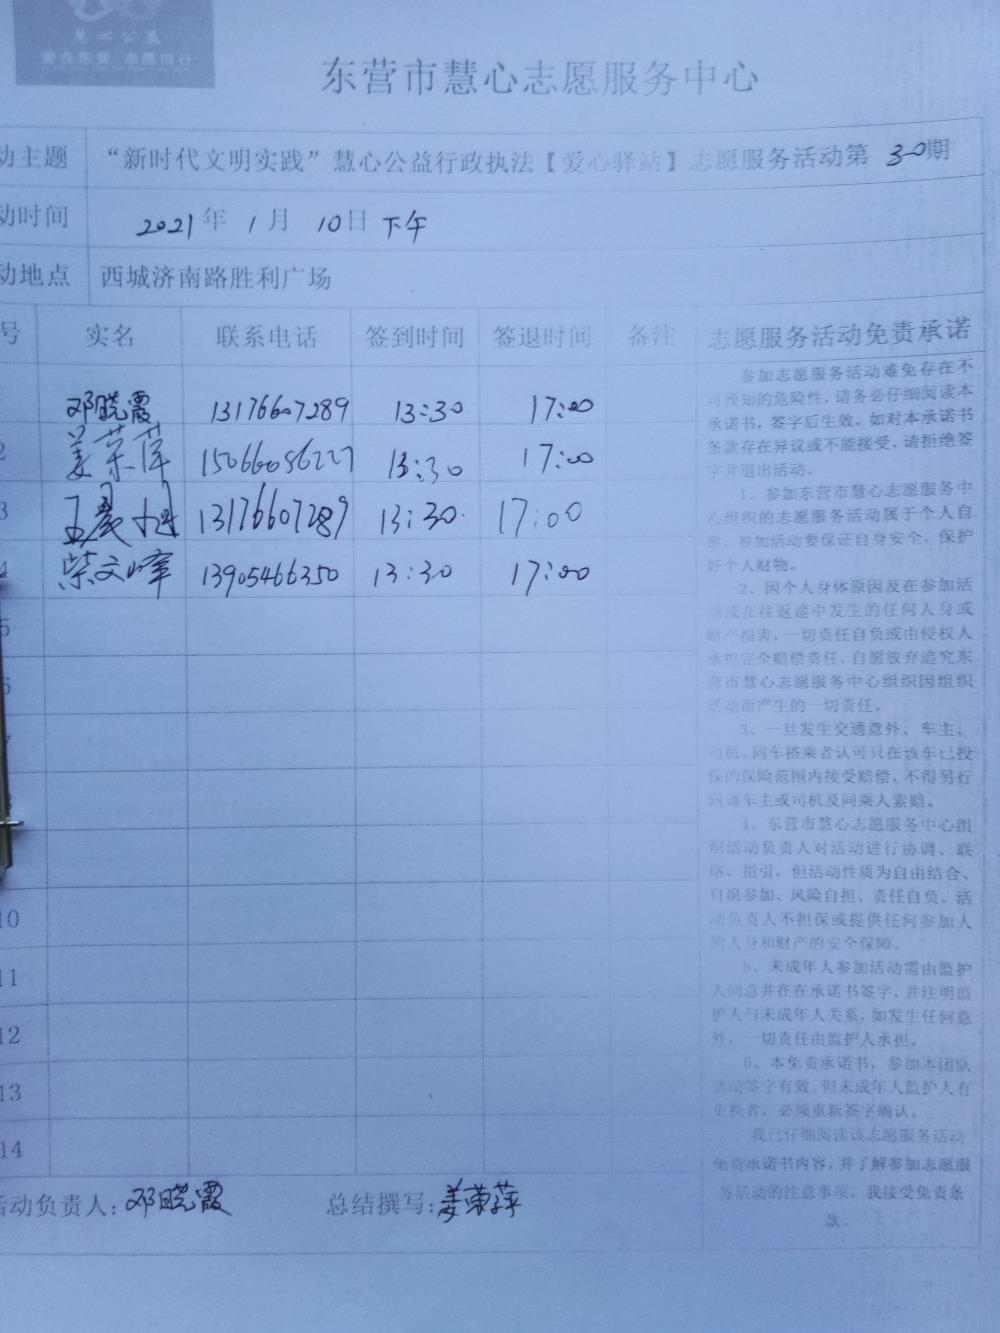 慧心公益
爱在东营 志愿同行
东营市慧心志愿服务中心
动主题 “新时代文明实践”慧心公益行政执法【爱心驿站】志愿服务活动第 30期
动时间 2021年 1月 10日 下午
动地点 西城济南路胜利广场
号 实名 联系电话 签到时间 签退时间 备注 志愿服务活动免责承诺
邓晓霞 13176607289 13:30 17:00
2 姜荣萍 15066056227 13:30 17:00
3 王晨旭 13176607289 13:30. 17:00
4 柴文峰 13905466350 13:30 17:00
5
6
7
8
10
11
12
13
14
参加志愿服务活动难免存在不
可预知的危险性，请务必仔细阅读本
承诺书，签字后生效。如对本承诺书
条款存在异议或不能接受，请拒绝签
字并退出活动。
1、参加东营市慧心志愿服务中
心组织的志愿服务活动属于个人自
愿，参加活动要保证自身安全，保护
好个人财物。
2、因个人身体原因及在参加活
动或在往返途中发生的任何人身或
财产损害，一切责任自负或由侵权人
承担完全赔偿责任，自愿放弃追究东
营市慧心志愿服务中心组织因组织
活动而产生的一切责任。
3、一旦发生交通意外，车主、
司机、同车搭乘者认可只在该车已投
保的保险范围内接受赔偿，不得另行
向该车主或司机及同乘人索赔。
4、东营市慧心志愿服务中心组
织活动负责人对活动进行协调、联
络、指引，但活动性质为自由结合、
自愿参加、风险自担、责任自负。活
动负责人不担保或提供任何参加人
的人身和财产的安全保障。
5、未成年人参加活动需由监护
人同意并在在承诺书签字，并注明监
护人与未成年人关系，如发生任何意
外，一切责任由监护人承担。
6、本免责承诺书，参加本团队
活动签字有效。但未成年人监护人有
更换者，必须重新签字确认。
我已仔细阅读该志愿服务活动
免责承诺书内容，并了解参加志愿服
务活动的注意事项，我接受免责条
款。
活动负责人：邓晓霞 总结撰写：姜荣萍